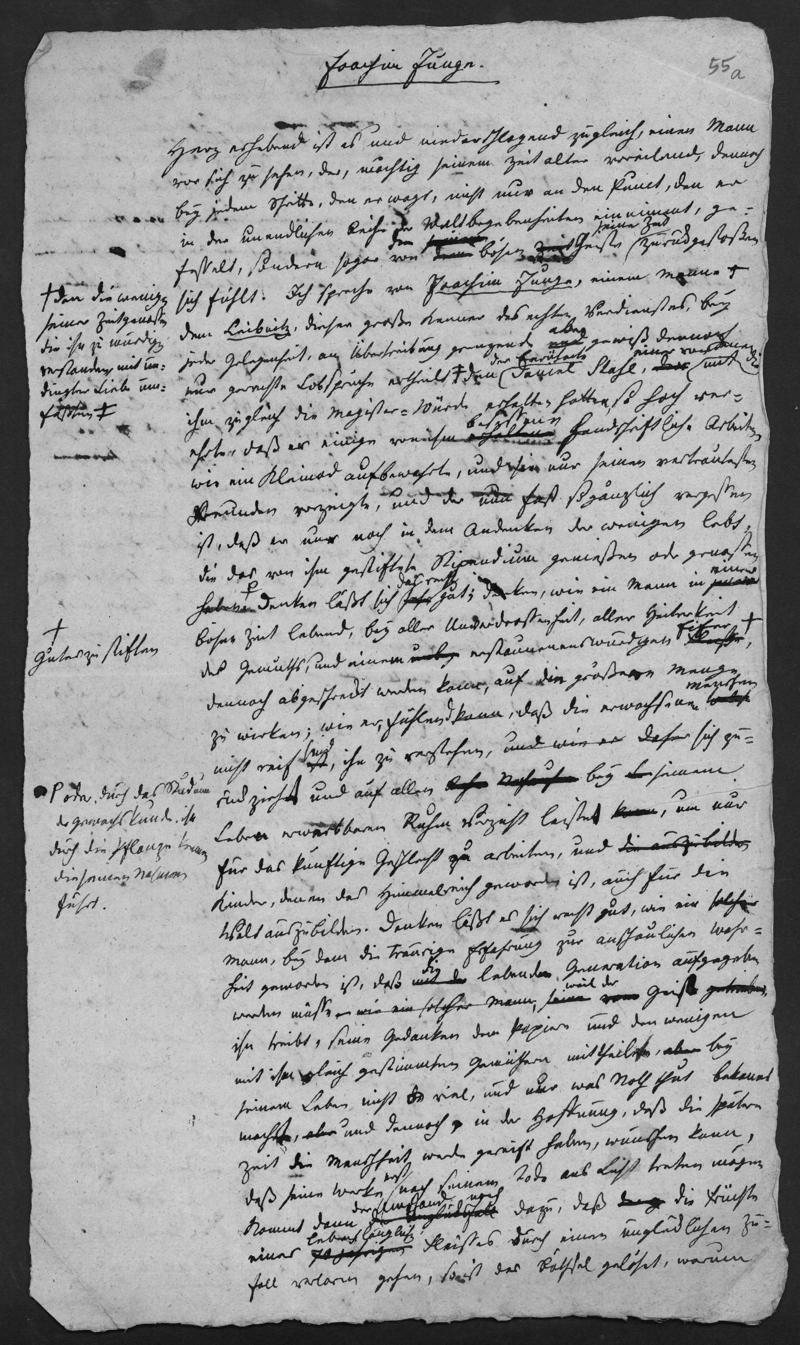 Joachim Junge.
55a
Herz erhebend ist es und niederschlagend zugleich, einen Mann
vor sich zu sehen, der, mächtig seinem Zeitalter voreilend, dennoch
bey jedem Schritte, den er wagt, nicht nur an den Punct, den er
in der unendlichen Reihe der Weltbegebenheiten einnimmt, ge-
fesselt, sondern sogar von dem bösen Geiste seiner Zeit zurückgestoßen
sich fühlt. Ich spreche von Joachim Junge, einem Manne †
dem Leibnitz, dieser große Kenner des echten Verdienstes, bey
jeder Gelegenheit, an Übertreibung grenzende aber gewiß dennoch
nur gerechte Lobsprüche ertheilt † den der Daniel Stahl, mit die
ihm zugleich die Magister-Würde erhalten hatten, so hoch ver-
ehrte, daß er einige von ihm besessene handschriftliche Arbeiten
wie ein Kleinod aufbewahrte, und sie nur seinen vertrautesten
Freunden vorzeigte, und der nun fast so gänzlich vergessen
ist, daß er nur noch in dem Andenken der wenigen lebt,
die das von ihm gestiftete Stipendium genießen oder genossen
haben. Denken läßt sich das recht gut; denken, wie ein Mann in einer
böser Zeit lebend, bey aller Unverdrossenheit, aller Heiterkeit
des Gemüths, und einem erstaunenswürdigen Eifer †,
dennoch abgeschreckt werden kann, auf die größere Menge
zu wirken; wie er, fühlend kann, daß die erwachsenen Menschen
nicht reif sind, ihn zu verstehen, und wie er daher sich zu-
rückzieht und auf allen bey seinem
Leben erwerbbaren Ruhm Verzicht leistet, um nur
für das künftige Geschlecht zu arbeiten, und die auszubilden
Kinder, denen das Himmelreich geworden ist, auch für die
Welt auszubilden. Denken läßt es sich recht gut, wie ein solcher
Mann, bey dem die traurige Erfahrung zur anschaulichen Wahr-
heit geworden ist, daß die lebende Generation aufgegeben
werden müsse, wie ein solcher Mann, weil der Geist getrieben,
ihn treibt, seine Gedanken dem Papiere und den wenigen
mit ihm gleich gestimmten Gemüthern mittheilet, aber bey
seinem Leben nicht viel, und nur was Noth thut bekannt
macht, aber und dennoch in der Hoffnung, daß die spätere
Zeit die Menschheit werde gereift haben, wünschen kann,
daß seine Werke erst nach seinem Tode ans Licht treten mögen
Kommt dann der Umstand noch dazu, daß die Früchte
eines lebenslänglichen 70jährigen Fleißes durch einen unglücklichen Zu-
fall verloren gehen, so ist das Räthsel gelöset, warum
† den die wenigen
seiner Zeitgenossen
die ihn zu würdigen
verstanden mit un-
bedingter Liebe um-
faßten †
†
Gutes zu stiften
oder durch das Studium
der Gewächskunde, ihn
durch die Pflanze kennen
die seinen Nahmen
führt.